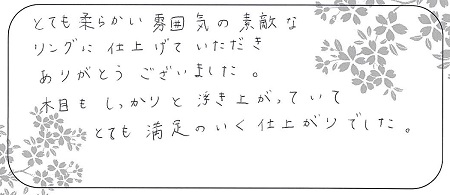 とても柔らかい雰囲気の素敵な
リングに仕上げていただき
ありがとうございました。
木目もしっかりと浮き上がっていて
とても満足のいく仕上がりでした。